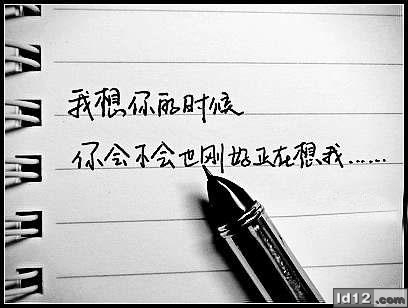 我想你的时候
你会不会也刚好正在想我......
Id12.com